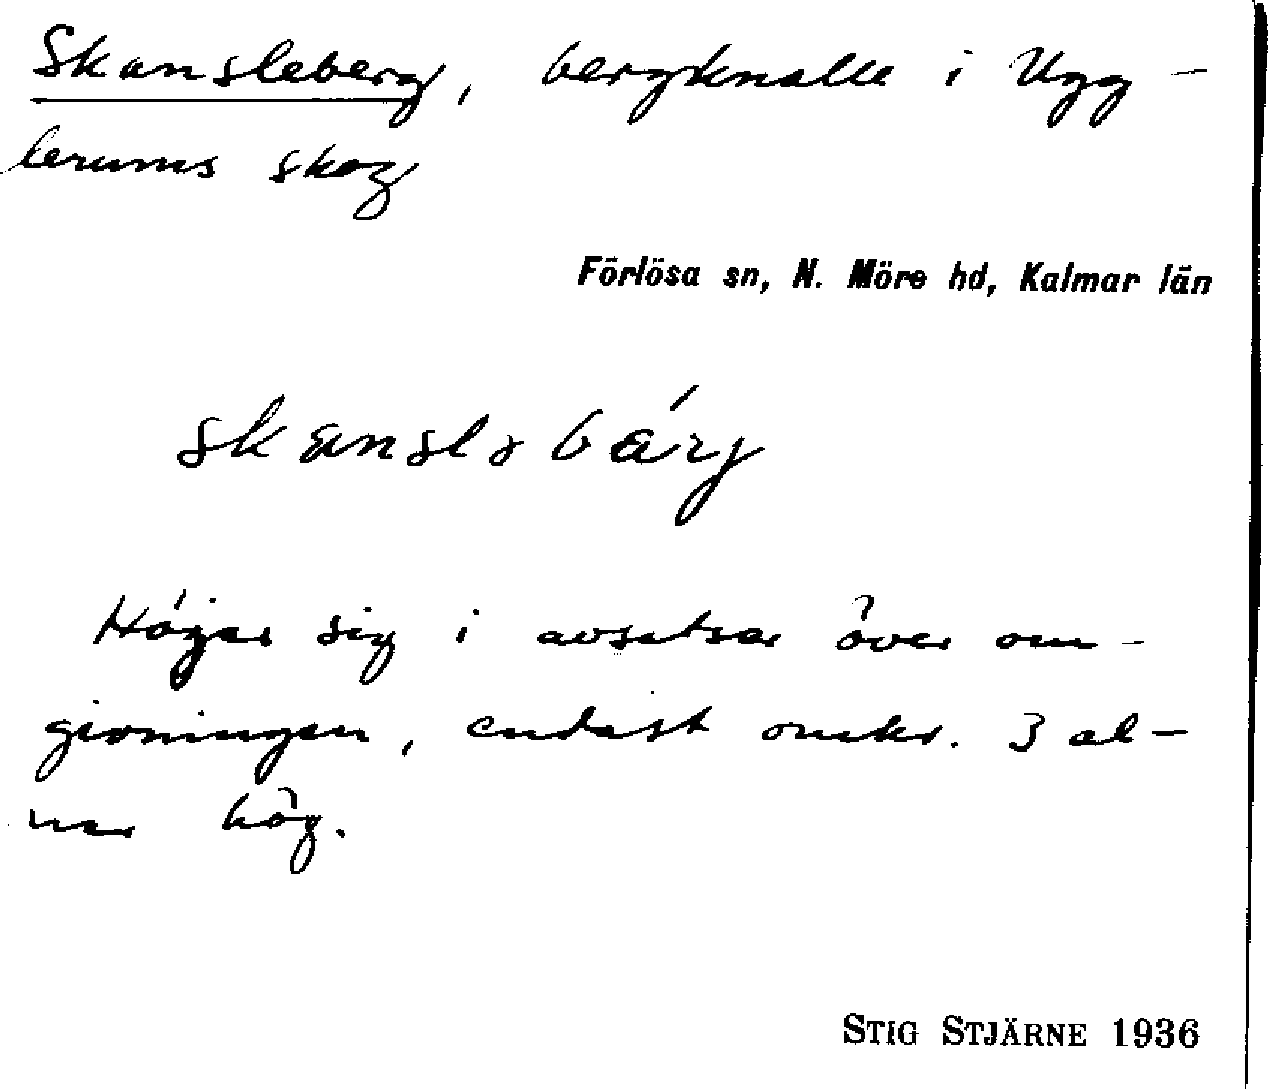 Skansleberg, bergknalle i Ugg-
lerums skog
Förlösa sn, N. Möre hd, Kalmar län
skanslə bärj
Höjer sig i avsatser över om-
givningen, endast omkr. 3 al-
nar hög.
STIG STJÄRNE 1936